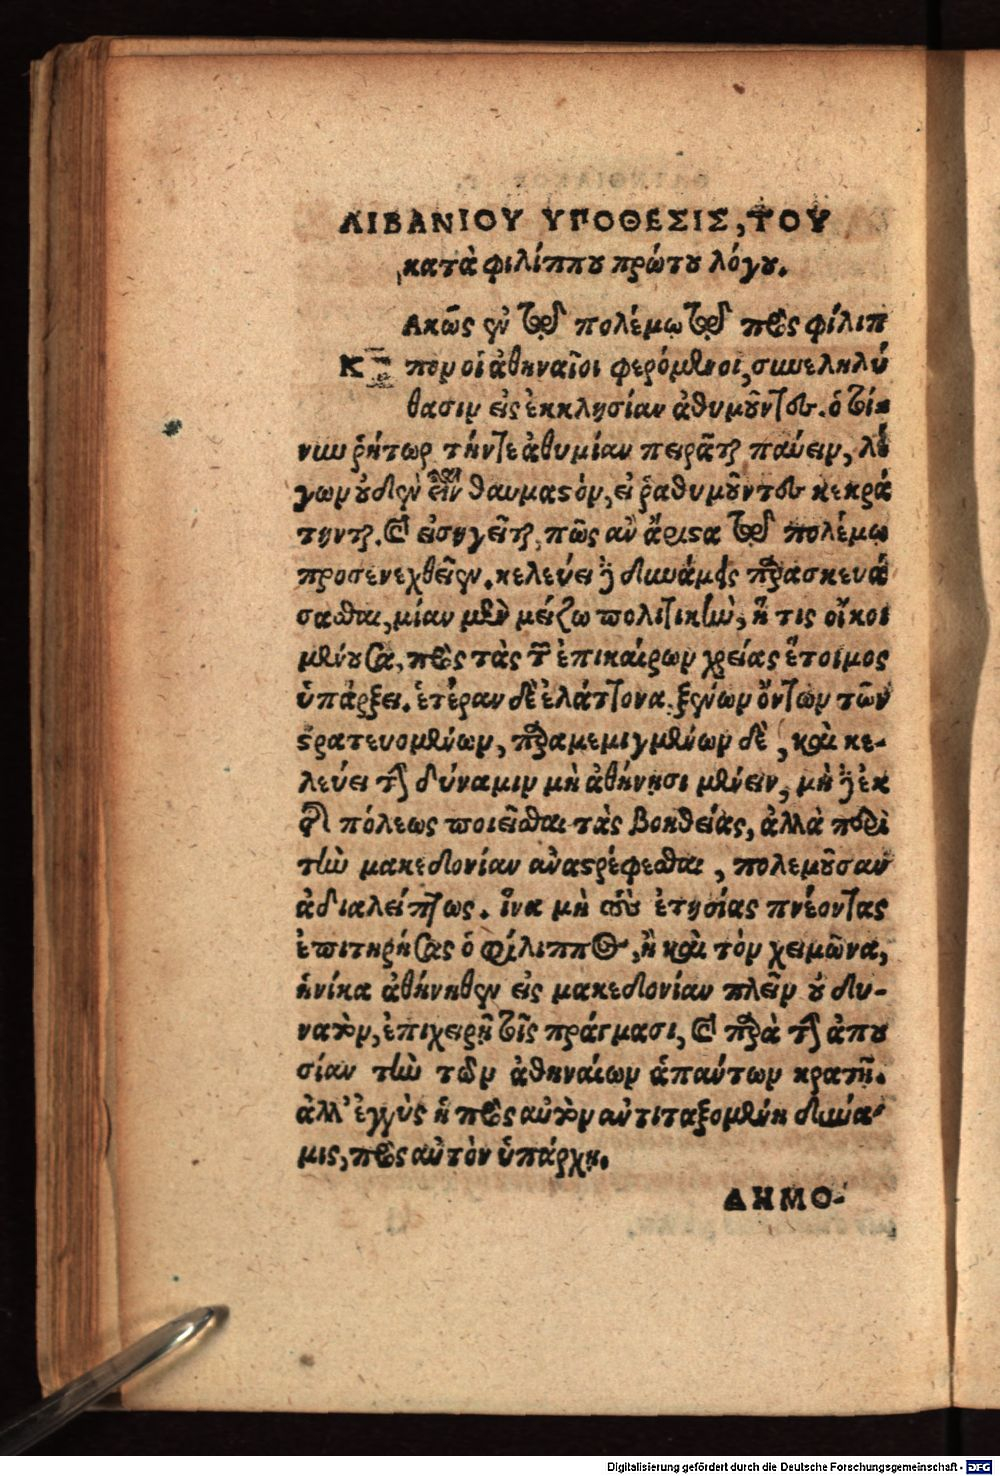 ΛΙΒΑΝΙΟΥ ΥΠΟΘΕΣΙΣ, ΤΟΥ
κατὰ φιλίππου πρώτου λόγου.
Κ Ακῶς ἐν τῷ πολέμῳ τῷ πρὸς φίλιπ
πον οἱ ἀθηναῖοι φερόμενοι, συνεληλύ
θασιν εἰς ἐκκλησίαν ἀθυμοῦντες. ὁ τοί-
νυν ῥήτωρ τήντε ἀθυμίαν πειρᾶται παύειν, λέ
γων οὐδὲν εἶναι θαυμαστὸν, εἰ ῥαθυμοῦντες κεκρά
τηνται. καὶ εἰσηγεῖται, πῶς ἂν ἄριστα τῷ πολέμῳ
προσενεχθεῖεν. κελεύει δὲ δυνάμεις παρασκευά
σασθαι, μίαν μὲν μείζω πολιτικὴν, ἥ τις οἴκοι
μένουσα, πρὸς τὰς τῶν ἐπικαίρων χρείας ἕτοιμος
ὑπάρξει. ἑτέραν δὲ ἐλάττονα. ξένων ὄντων τῶν
στρατευομένων, παραμεμιγμένων δὲ , καὶ κε-
λεύει τὴν δύναμιν μὴ ἀθήνησι μένειν, μὴ δὲ ἐκ
τῆς πόλεως ποιεῖσθαι τὰς βοηθείας, ἀλλὰ περὶ
τὴν μακεδονίαν ἀναστρέφεσθαι , πολεμοῦσαν
ἀδιαλείπτως. ἵνα μὴ τοὺς ἐτησίας πνέοντας
ἐπιτηρήσας ὁ φίλιππος, ἢ καὶ τὸν χειμῶνα,
ἡνίκα ἀθήνηθεν εἰς μακεδονίαν πλεῖν οὐ δυ-
νατὸν, ἐπιχειρῇ τοῖς πράγμασι, καὶ παρὰ τὴν ἀπου
σίαν τὴν τῶν ἀθηναίων ἁπάντων κρατῇ.
ἀλλ' ἐγγὺς ἡ πρὸς αὐτὸν ἀντιταξομένη δύνα-
μις, πρὸς αὐτὸν ὑπάρχῃ.
ΔΗΜΟ-
Digitalisierung gefördert durch die Deutsche Forschungsgemeinschaft - DFG